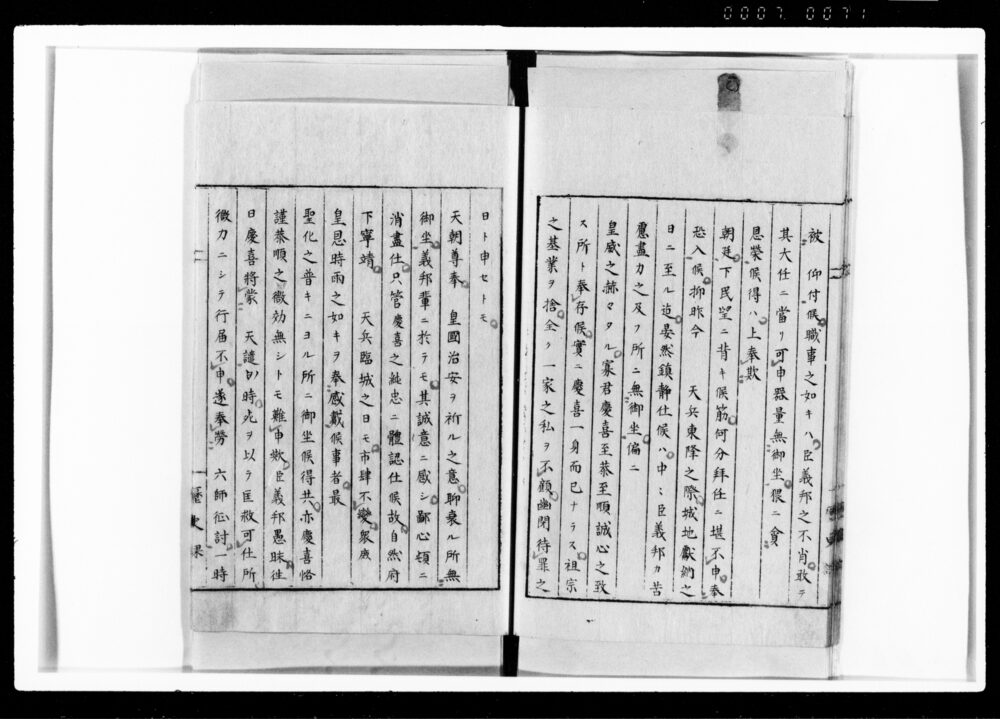 0007 0071
被 仰付候職事之如キハ臣義邦之不肖敢テ
其大任ニ當リ可申器量無御坐猥ニ貪
恩榮候得ハ上奉欺
朝廷下民望ニ背キ候筋何分拜任ニ堪不申奉
恐入候抑昨今 天兵東降之際城地獻納之
日ニ至ル迄晏然鎮静仕候ハ中々臣義邦カ苦
慮盡力之及フ所ニ無御坐偏ニ
皇威之赫々タル寡君慶喜至恭至順誠心之致
ス所ト奉存候實ニ慶喜一身而已ナラス祖宗
之基業ヲ捨全ク一家之私ヲ不顧幽閉待罪之
日ト申セトモ
天朝尊奉 皇國治安ヲ祈ルノ意聊衰ル所無
御坐義邦輩ニ於テモ其誠意ニ感シ鄙心頓ニ
消盡仕只管慶喜之純忠ニ體認仕候故自然府
下寧靖 天兵臨城之日モ市肆不變衆庶
皇恩時雨之如キヲ奉感戴候事者最
聖化之普キニヨル所ニ御坐候得共亦慶喜恪
謹恭順之微効無シトモ難申歟臣義邦愚昧往
日慶喜將蒙 天譴ノ時死ヲ以テ匡救可仕所
微力ニシテ行届不申遂奉勞 六師征討一時
歴史課